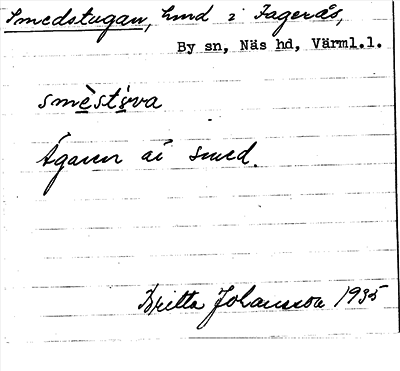 Smedstugan, hmd i Fagerås,
By sn, Näs hd, Värml.l.
smèstùva
Ägaren är smed.
Britta Johansson 1935